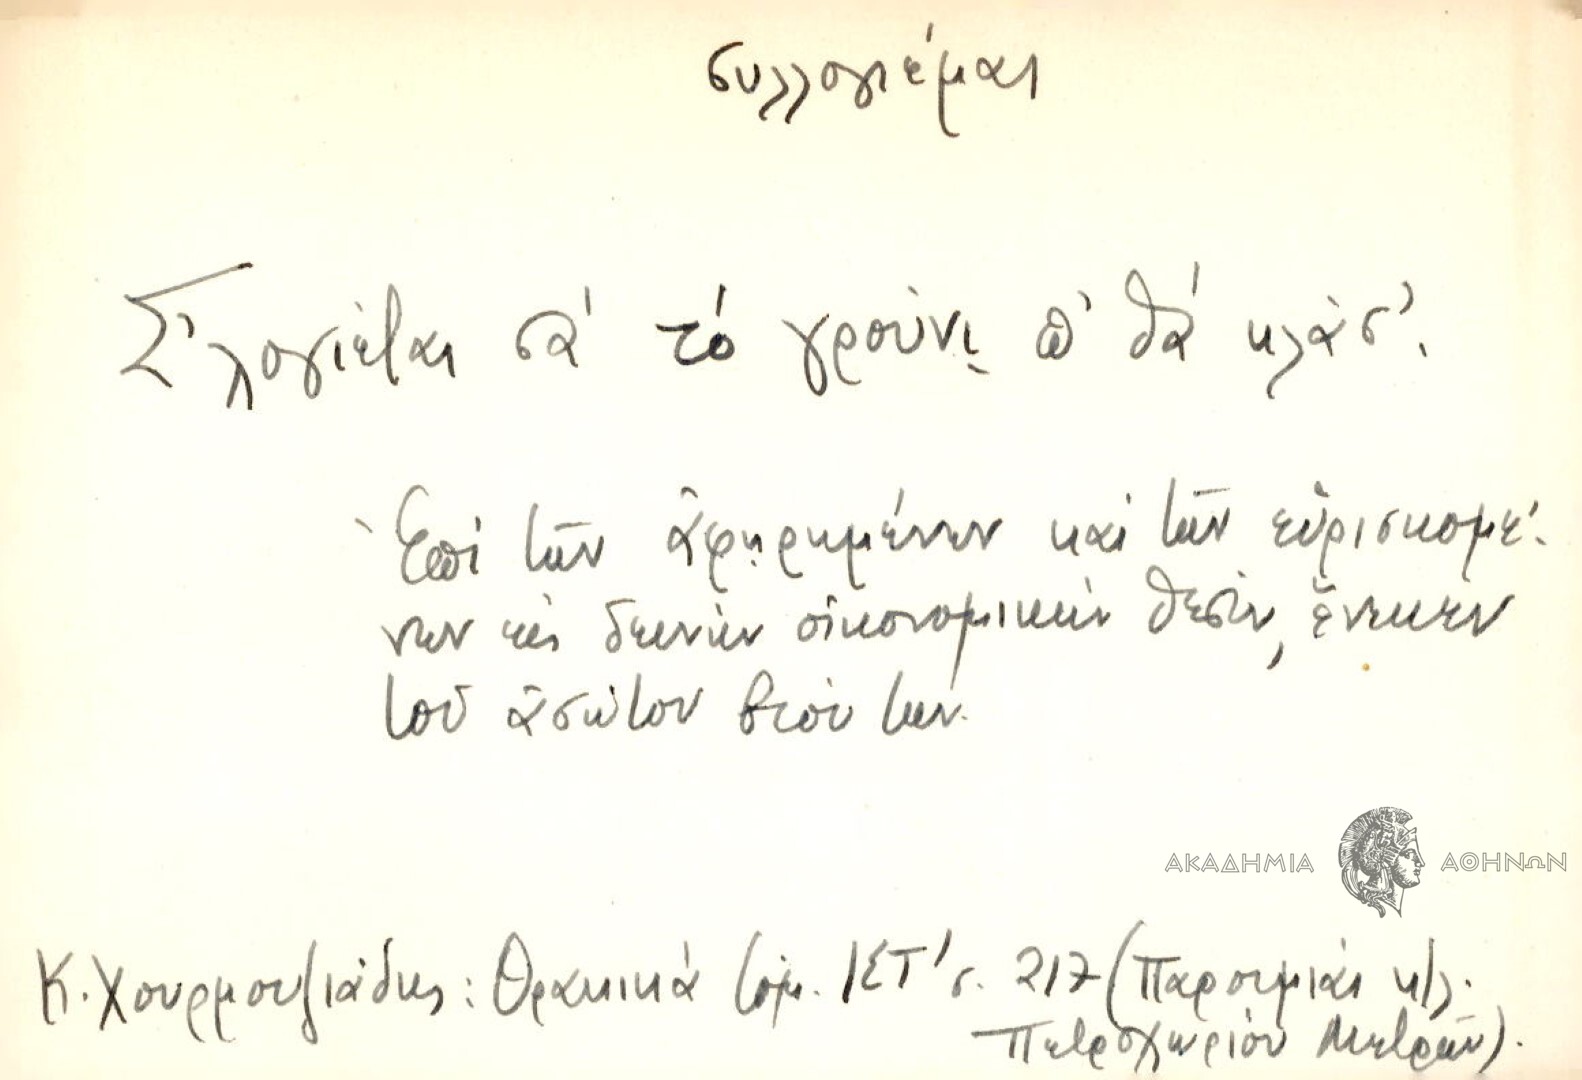 συλλογιέμαι
Σ'λογιέται σά τό γρούνι π' θά κλάσ'.
Ἐπί τῶν ἀφῃρημένων καί τῶν εὑρισκομέ-
νων εἰς δεινήν οἰκονομικήν θέσιν, ἕνεκεν
τοῦ ἀσώτου βίου των.
ΑΚΑΔΗΜΙΑ ΑΘΗΝΩΝ
Κ. Χουρμουζιάδης: Θρακικά τόμ. ΙΣΤ' σ. 217 (Παροιμίαι κλ.
Πετροχωρίου Μετρῶν).